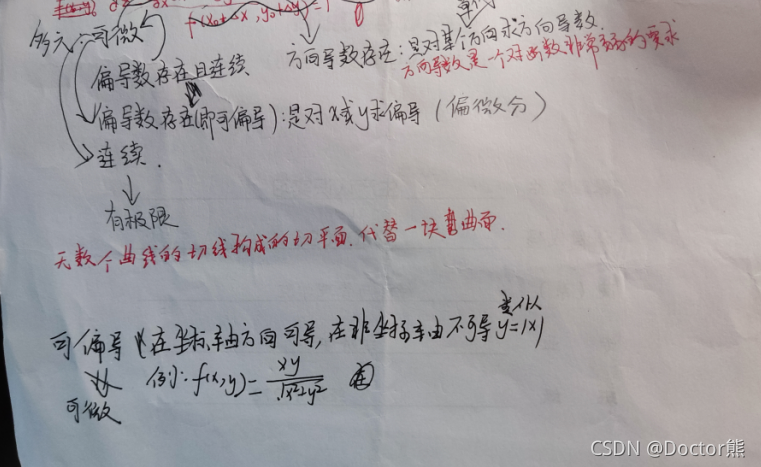 f(x₀+Δx, y₀+Δy)=1 0
多元:可微
方向导数存在:是对某个方向求方向导数
偏导数存在且连续
方向导数是一个对函数非常弱的要求
偏导数存在(即可偏导):是对x或y求偏导(偏微分)
连续.
有极限
无数个曲线的切线构成的切平面.代替一块弯曲面.
类似
可偏导(在坐标轴方向可导,在非坐标轴不可导y=|x|
例:f(x,y)=xy/√x²+y²
可微
CSDN @Doctor熊